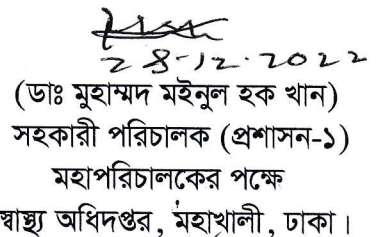 28-12-2022
(ডাঃ মুহাম্মদ মইনুল হক খান)
সহকারী পরিচালক (প্রশাসন-১)
মহাপরিচালকের পক্ষে
স্বাস্থ্য অধিদপ্তর, মহাখালী, ঢাকা।